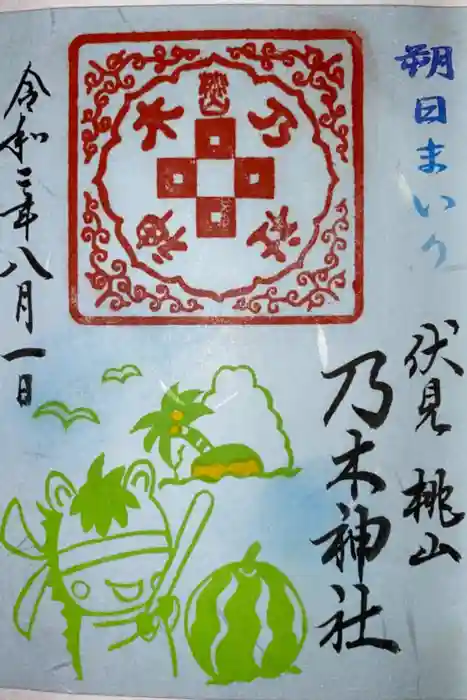 朔日まいり
伏見 桃山
乃木神社
桃山
乃木
神社
令和二年八月一日